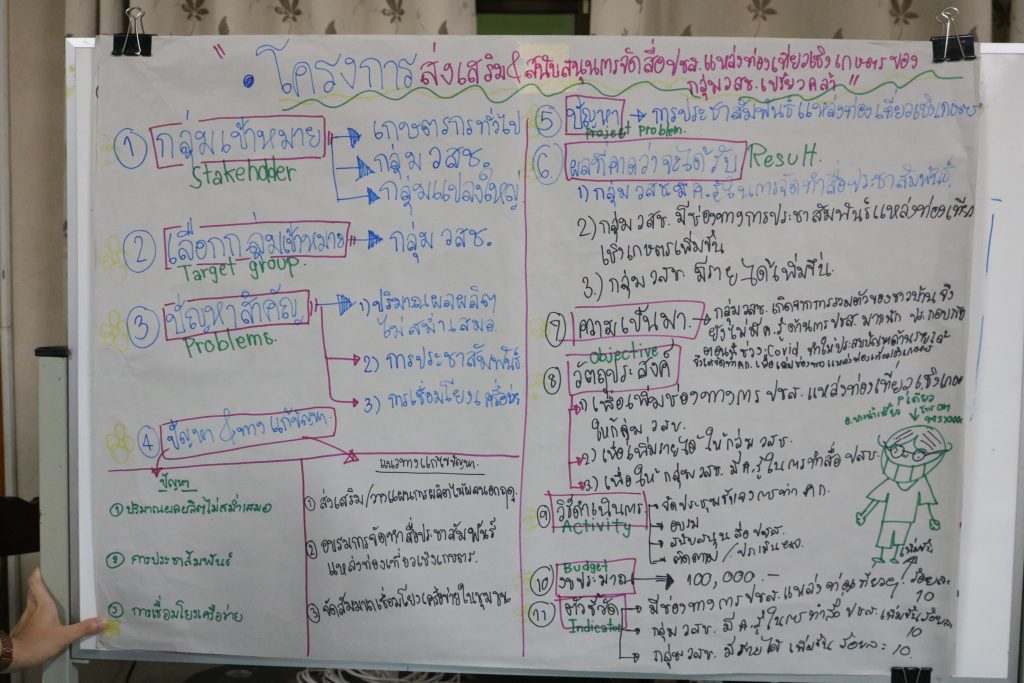 "โครงการส่งเสริม & สนับสนุนการจัดสื่อปชส.แหล่งท่องเที่ยวเชิงเกษตรของ
กลุ่มวสช.เปรี้ยวคล้า"
① กลุ่มเป้าหมาย
Stakeholder
เกษตรกรทั่วไป
กลุ่ม วสช.
กลุ่มแปลงใหญ่
② เลือกกลุ่มเป้าหมาย
Target group.
กลุ่ม วสช.
③ ปัญหาสำคัญ
Problems.
1) ปริมาณผลผลิต
ไม่สม่ำเสมอ.
2) การประชาสัมพันธ์
3) การเชื่อมโยงเครือข่าย
④ ปัญหา & ทางแก้ปัญหา.
ปัญหา
① ปริมาณผลผลิตไม่สม่ำเสมอ
② การประชาสัมพันธ์
③ การเชื่อมโยงเครือข่าย
แนวทางแก้ไขปัญหา.
① ส่งเสริม/วางแผนการผลิตไม้ผลนอกฤดู.
② อบรมการจัดทำสื่อประชาสัมพันธ์
แหล่งท่องเที่ยวเชิงเกษตร.
③ จัดสัมมนาเชื่อมโยงเครือข่ายในชุมชน
⑤ ปัญหา → การประชาสัมพันธ์แหล่งท่องเที่ยวเชิงเกษตร
Project Problem.
6. ผลที่คาดว่าจะได้รับ Result.
1) กลุ่ม วสช. มี ค.รู้ในการจัดทำสื่อประชาสัมพันธ์.
2) กลุ่ม วสช. มีช่องทางการประชาสัมพันธ์แหล่งท่องเที่ยว
เชิงเกษตรเพิ่มขึ้น
3.) กลุ่ม วสช. มีรายได้เพิ่มขึ้น.
⑦ ความเป็นมา. → กลุ่ม วสช. เกิดจากการรวมตัวของชาวบ้าน จึง
ยังไม่มี ค.รู้ ด้านการ ปชส. มากนัก ประกอบกับ
ตอนนี้ช่วง Covid ทำให้ประสบปัญหาด้านรายได้
Objective
⑧ วัตถุประสงค์
1) เพื่อเพิ่มช่องทางการ ปชส. แหล่งท่องเที่ยวเชิงเกษตร
ให้กลุ่ม วสช.
2) เพื่อเพิ่มรายได้ ให้กลุ่ม วสช.
3) เพื่อให้ กลุ่ม วสช. มี ค.รู้ ในการทำสื่อ ปชส.
⑨ วิธีดำเนินการ
Activity
จัดประชุมชี้แจงการทำ คก.
อบรม
สนับสนุนสื่อปชส.
ติดตาม/ประเมินผล
Budget
⑩ งบประมาณ → 100,000.-
⑪ ตัวชี้วัด
Indicator
มีช่องทางการ ปชส. แหล่งท่องเที่ยวฯ เพิ่มขึ้น ร้อยละ 10
กลุ่ม วสช. มี ค.รู้ในการทำสื่อ ปชส. เพิ่มขึ้นร้อยละ 10
กลุ่ม วสช. มีรายได้ เพิ่มขึ้น ร้อยละ 10.